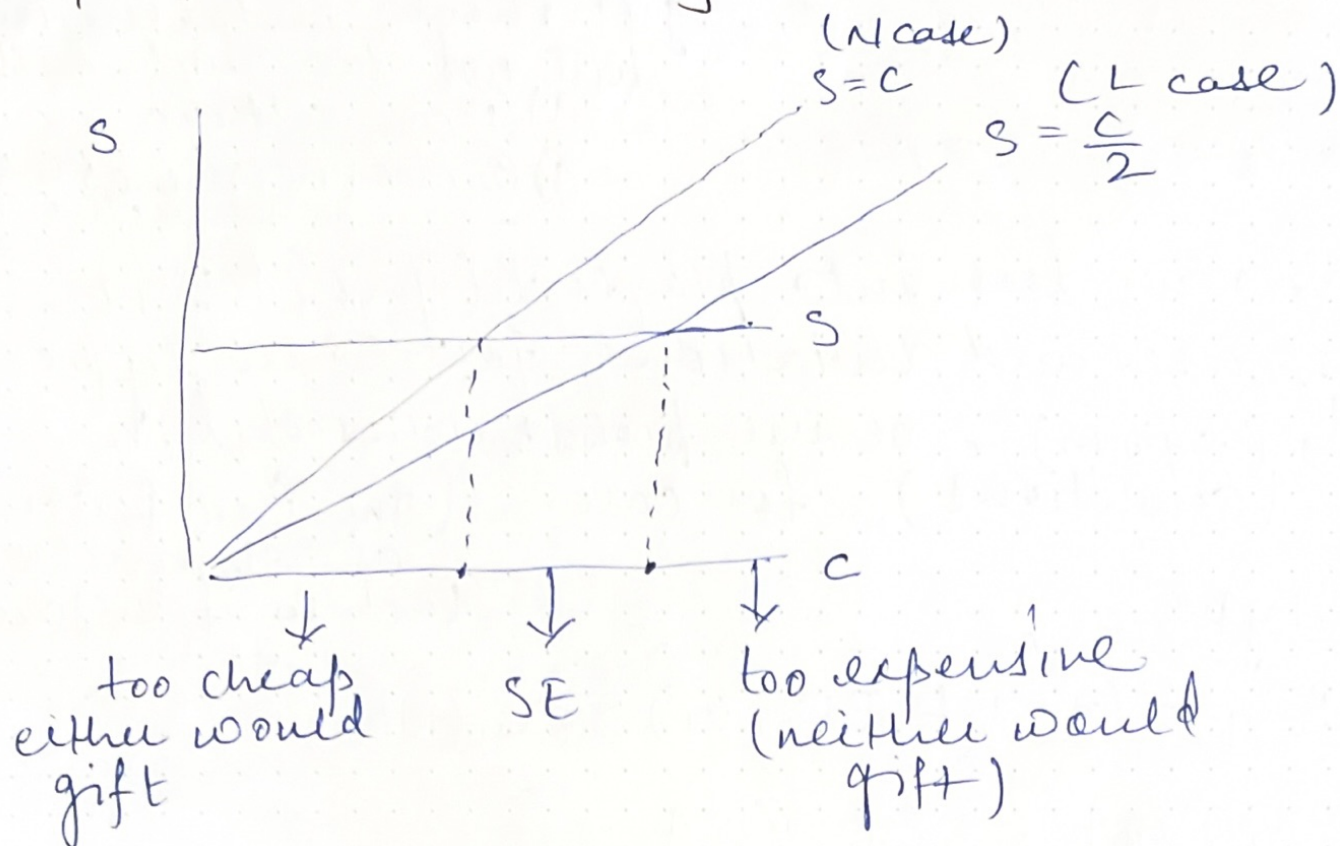 (N case)
S = C
(L case)
S = C/2
S
S
C
too cheap
either would
gift
SE
too expensive
(neither would
gift)